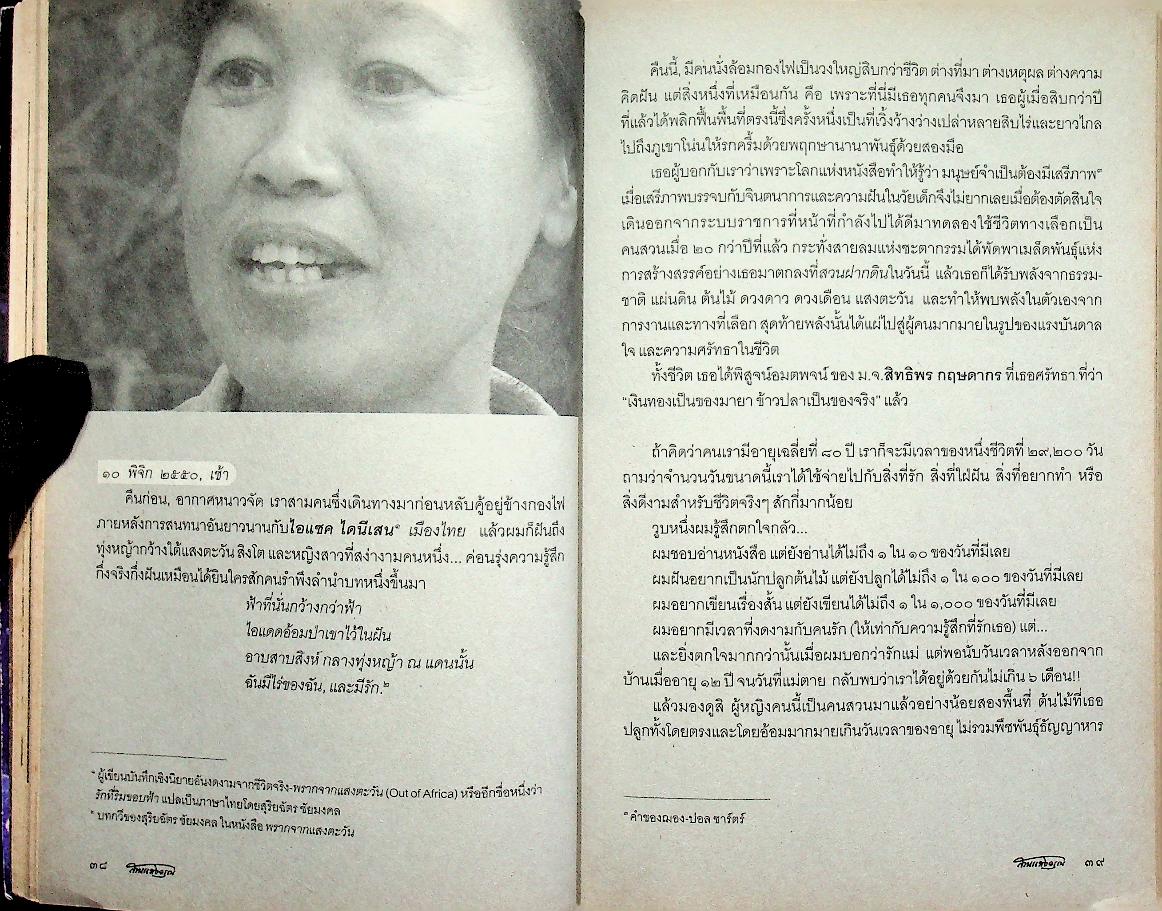 ๑๐ พิจิก ๒๕๕๐, เช้า
คืนก่อน, อากาศหนาวจัด เราสามคนซึ่งเดินทางมาก่อนหลับคู้อยู่ข้างกองไฟ
ภายหลังการสนทนาอันยาวนานกับไอแซค ไดนีเสน๑ เมืองไทย แล้วผมก็ฝันถึง
ทุ่งหญ้ากว้างใต้แสงตะวัน สิงโต และหญิงสาวที่สง่างามคนหนึ่ง... ค่อนรุ่งความรู้สึก
กึ่งจริงกึ่งฝันเหมือนได้ยินใครสักคนรำพึงลำนำบทหนึ่งขึ้นมา
ฟ้าที่นั่นกว้างกว่าฟ้า
ไอแดดอ้อมป่าเขาไว้ในฝัน
อาบสาบสิงห์ กลางทุ่งหญ้า ณ แดนนั้น
ฉันมีไร่ของฉัน, และมีรัก.๒
๑ ผู้เขียนบันทึกเชิงนิยายอันงดงามจากชีวิตจริง-พรากจากแสงตะวัน (Out of Africa) หรืออีกชื่อหนึ่งว่า
รักที่ริมขอบฟ้า แปลเป็นภาษาไทยโดยสุริยฉัตร ชัยมงคล
๒ บทกวีของสุริยฉัตร ชัยมงคล ในหนังสือ พรากจากแสงตะวัน
๓๘
คืนนี้, มีคนนั่งล้อมกองไฟเป็นวงใหญ่สิบกว่าชีวิต ต่างที่มา ต่างเหตุผล ต่างความ
คิดฝัน แต่สิ่งหนึ่งที่เหมือนกัน คือ เพราะที่นี่มีเธอทุกคนจึงมา เธอผู้เมื่อสิบกว่าปี
ที่แล้วได้พลิกฟื้นพื้นที่ตรงนี้ซึ่งครั้งหนึ่งเป็นที่เวิ้งว้างว่างเปล่าหลายสิบไร่และยาวไกล
ไปถึงภูเขาโน่นให้รกครึ้มด้วยพฤกษานานาพันธุ์ด้วยสองมือ
เธอผู้บอกกับเราว่าเพราะโลกแห่งหนังสือทำให้รู้ว่า มนุษย์จำเป็นต้องมีเสรีภาพ๓
เมื่อเสรีภาพบรรจบกับจินตนาการและความฝันในวัยเด็กจึงไม่ยากเลยเมื่อต้องตัดสินใจ
เดินออกจากระบบราชการที่หน้าที่กำลังไปได้ดีมาทดลองใช้ชีวิตทางเลือกเป็น
คนสวนเมื่อ ๒๐ กว่าปีที่แล้ว กระทั่งสายลมแห่งชะตากรรมได้พัดพาเมล็ดพันธุ์แห่ง
การสร้างสรรค์อย่างเธอมาตกลงที่สวนฝากดินในวันนี้ แล้วเธอก็ได้รับพลังจากธรรม-
ชาติ แผ่นดิน ต้นไม้ ดวงดาว ดวงเดือน แสงตะวัน และทำให้พบพลังในตัวเองจาก
การงานและทางที่เลือก สุดท้ายพลังนั้นได้แผ่ไปสู่ผู้คนมากมายในรูปของแรงบันดาล
ใจ และความศรัทธาในชีวิต
ทั้งชีวิต เธอได้พิสูจน์อมตพจน์ ของ ม.จ.สิทธิพร กฤษดากร ที่เธอศรัทธา ที่ว่า
“เงินทองเป็นของมายา ข้าวปลาเป็นของจริง” แล้ว
ถ้าคิดว่าคนเรามีอายุเฉลี่ยที่ ๘๐ ปี เราก็จะมีเวลาของหนึ่งชีวิตที่ ๒๙,๒๐๐ วัน
ถามว่าจำนวนวันขนาดนี้เราได้ใช้จ่ายไปกับสิ่งที่รัก สิ่งที่ใฝ่ฝัน สิ่งที่อยากทำ หรือ
สิ่งดีงามสำหรับชีวิตจริงๆ สักกี่มากน้อย
วูบหนึ่งผมรู้สึกตกใจกลัว...
ผมชอบอ่านหนังสือ แต่ยังอ่านได้ไม่ถึง ๑ ใน ๑๐ ของวันที่มีเลย
ผมฝันอยากเป็นนักปลูกต้นไม้ แต่ยังปลูกได้ไม่ถึง ๑ ใน ๑๐๐ ของวันที่มีเลย
ผมอยากเขียนเรื่องสั้น แต่ยังเขียนได้ไม่ถึง ๑ ใน ๑,๐๐๐ ของวันที่มีเลย
ผมอยากมีเวลาที่งดงามกับคนรัก (ให้เท่ากับความรู้สึกที่รักเธอ) แต่...
และยิ่งตกใจมากกว่านั้นเมื่อผมบอกว่ารักแม่ แต่พอนับวันเวลาหลังออกจาก
บ้านเมื่ออายุ ๑๒ ปี จนวันที่แม่ตาย กลับพบว่าเราได้อยู่ด้วยกันไม่เกิน ๖ เดือน!!
แล้วมองดูสิ ผู้หญิงคนนี้เป็นคนสวนมาแล้วอย่างน้อยสองพื้นที่ ต้นไม้ที่เธอ
ปลูกทั้งโดยตรงและโดยอ้อมมากมายเกินวันเวลาของอายุ ไม่รวมพืชพันธุ์ธัญญาหาร
๓ คำของฌอง-ปอล ซาร์ตร์
๓๙